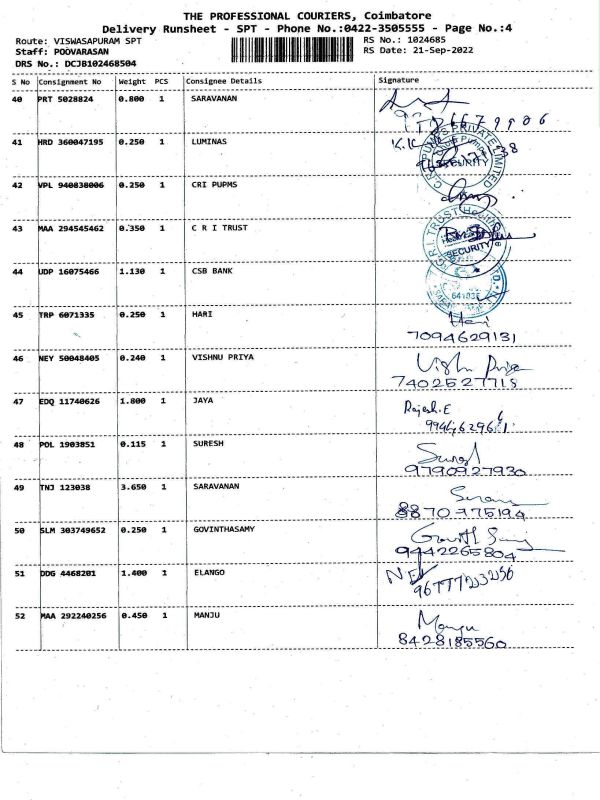 THE PROFESSIONAL COURIERS, Coimbatore
Delivery Runsheet - SPT - Phone No.:0422-3505555 - Page No.:4
Route: VISWASAPURAM SPT RS No.: 1024685
Staff: POOVARASAN RS Date: 21-Sep-2022
DRS No.: DCJB102468504
S No Consignment No Weight PCS Consignee Details Signature
40 PRT 5028824 0.800 1 SARAVANAN
41 HRD 360047195 0.250 1 LUMINAS
C.R.I. PUMPS PRIVATE LIMITED
SECURITY
42 VPL 940838006 0.250 1 CRI PUPMS
43 MAA 294545462 0.350 1 C R I TRUST
C.R.I. TRUST
SECURITY
44 UDP 16075466 1.130 1 CSB BANK
45 TRP 6071335 0.250 1 HARI Hari
7094629131
46 NEY 50048405 0.240 1 VISHNU PRIYA Vishnu Priya
7402527718
47 EDQ 11740626 1.800 1 JAYA Rajesh.E
48 POL 1903851 0.115 1 SURESH
9790927930
49 TNJ 123038 3.650 1 SARAVANAN
8870775194
50 SLM 303749652 0.250 1 GOVINTHASAMY
9442265804
51 DDG 4468201 1.400 1 ELANGO
9677723256
52 MAA 292240256 0.450 1 MANJU Manju
8428185560